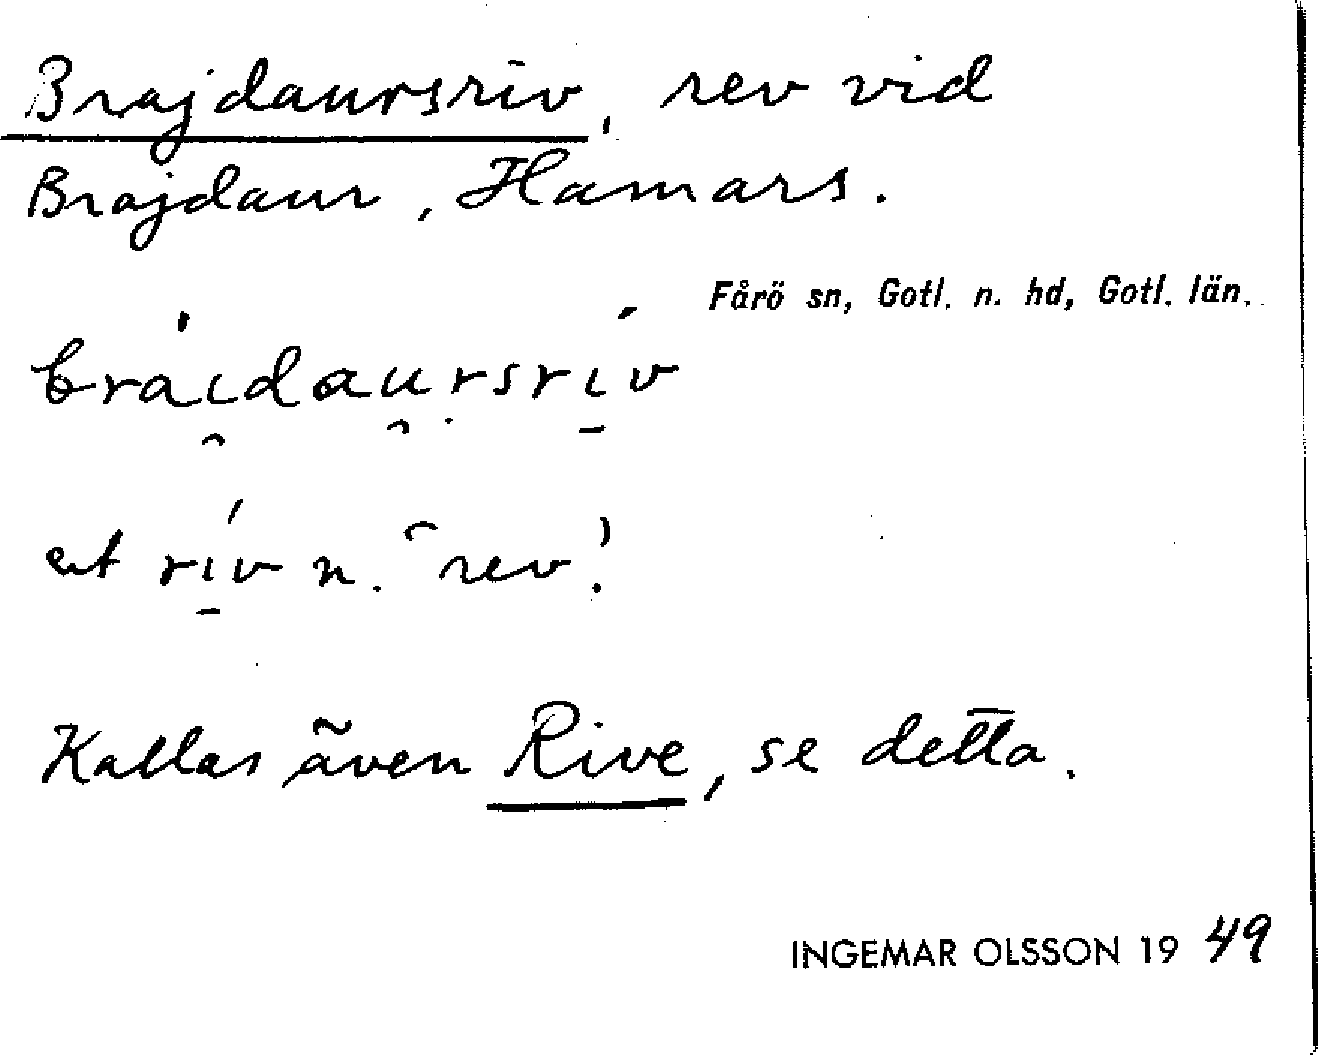 Brajdaursriv, rev vid
Brajdaur, Hamars.
Fårö sn, Gotl. n. hd, Gotl. län.
bráidaursrív
et rív n. "rev".
Kallas även Rive, se detta.
INGEMAR OLSSON 1949